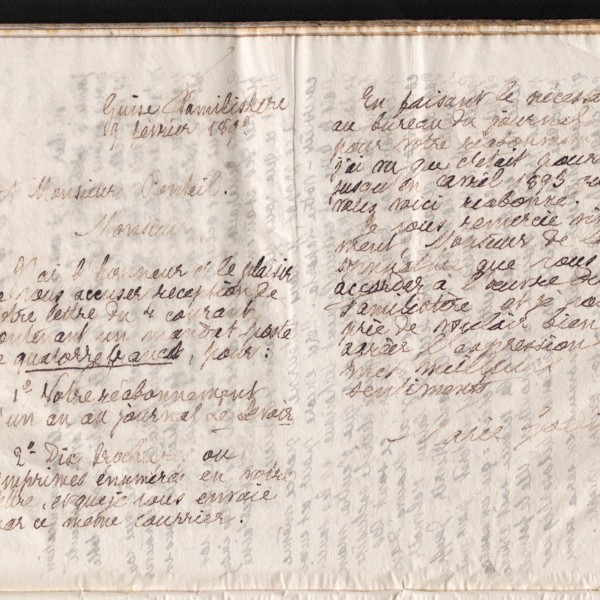 Guise Familistère
9 février 189
A Monsieur Conseil.
Monsieur,
J'ai l'honneur et le plaisir
vous accuser réception de
votre lettre du 4 courant
contenant un mandat poste
de quatorze francs, pour:
1° Votre réabonnement
d'un an au journal Le Devoir
2° Dix broches ou
imprimés énumérés en votre
lettre, et que je vous envoie
par ce même courrier.
En faisant le nécessa
au bureau du journal
pour votre réabonnem
j'ai vu que c'était pour
jusqu'en avril 1893 qu
vous voici réabonné.
Je vous remercie vi
vement, Monsieur de la
sympathie que vous
accordez à l'œuvre du
Familistère et je vo
prie de vouloir bien
agréer l'expression
mes meilleurs
sentiments
Marie